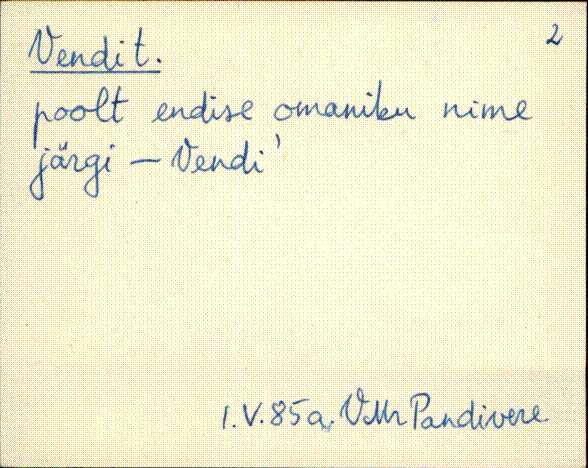 2
Vendi t.
poolt endise omaniku nime
järgi – Vendi'
1.V.85a. VMr Pandivere